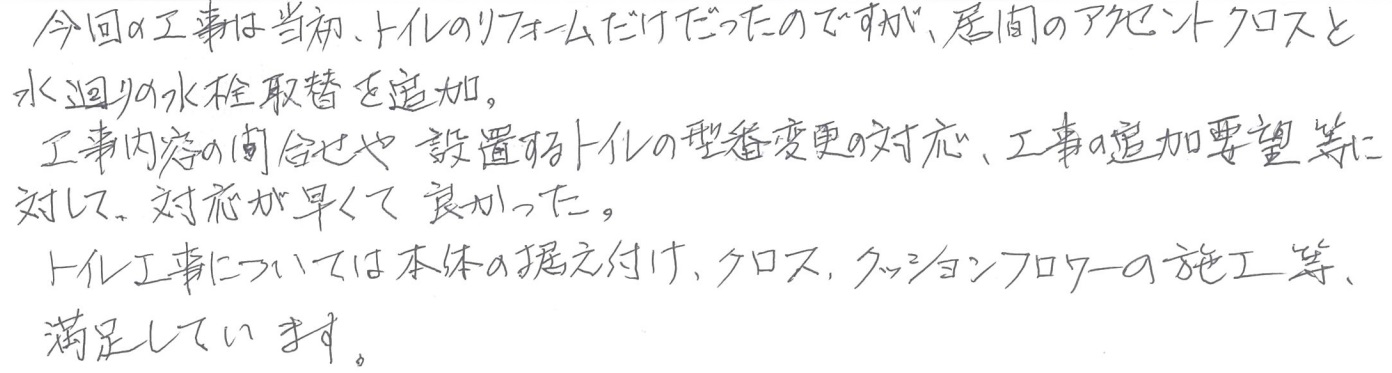 今回の工事は当初、トイレのリフォームだけだったのですが、居間のアクセントクロスと
水廻りの水栓取替を追加。
工事内容の問合せや設置するトイレの型番変更の対応、工事の追加要望等に
対して、対応が早くて良かった。
トイレ工事については本体の据え付け、クロス、クッションフロワーの施工等、
満足しています。